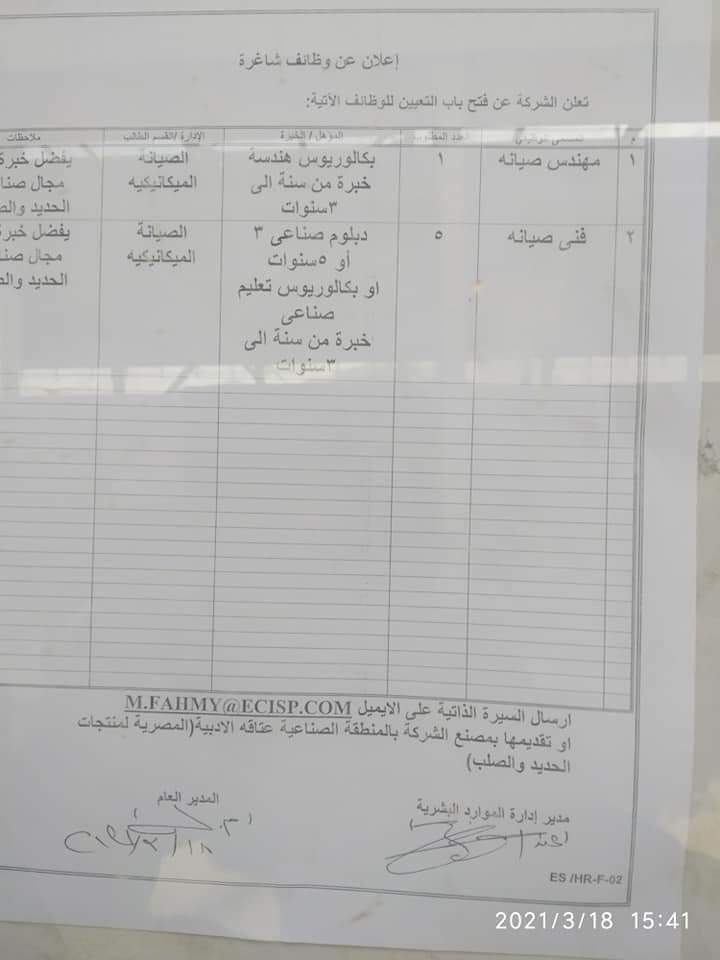 إعلان عن وظائف شاغرة
تعلن الشركة عن فتح باب التعيين للوظائف الآتية:
م
العدد المطلوب
المؤهل / الخبرة
الإدارة /القسم الطالب
ملاحظات
١
مهندس صيانه
١
بكالوريوس هندسة
خبرة من سنة الى
٣سنوات
الصيانة
الميكانيكيه
يفضل خبرة
مجال صنا
الحديد والص
٢
فنى صيانه
٥
دبلوم صناعى ٣
أو ٥سنوات
او بكالوريوس تعليم
صناعى
خبرة من سنة الى
٣سنوات
الصيانة
الميكانيكيه
يفضل خبرة
مجال صنا
الحديد والص
ارسال السيرة الذاتية على الايميل M.FAHMY@ECISP.COM
او تقديمها بمصنع الشركة بالمنطقة الصناعية عتاقه الادبية(المصرية لمنتجات
الحديد والصلب)
مدير إدارة الموارد البشرية
المدير العام
ES /HR-F-02
2021/3/18 15:41